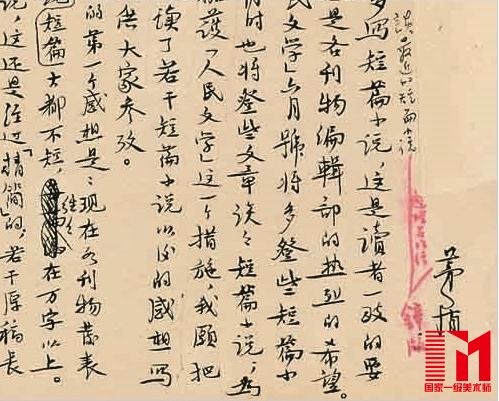 谈最近的短篇小说
茅盾
多写短篇小说,这是读者一致的要
是各刊物编辑部的热烈的希望。
民文学」六月號将多登些短篇小
时也将登些文章谈谈短篇小说,为
护「人民文学」这一个措施,我願把
读了若干短篇小说以后的感想写
供大家参考。
的第一个感想是:现在各刊物发表
短篇大都不短,往往在万字以上。
说,这还是经过「精简」的,若干原稿长
国家一级美术师